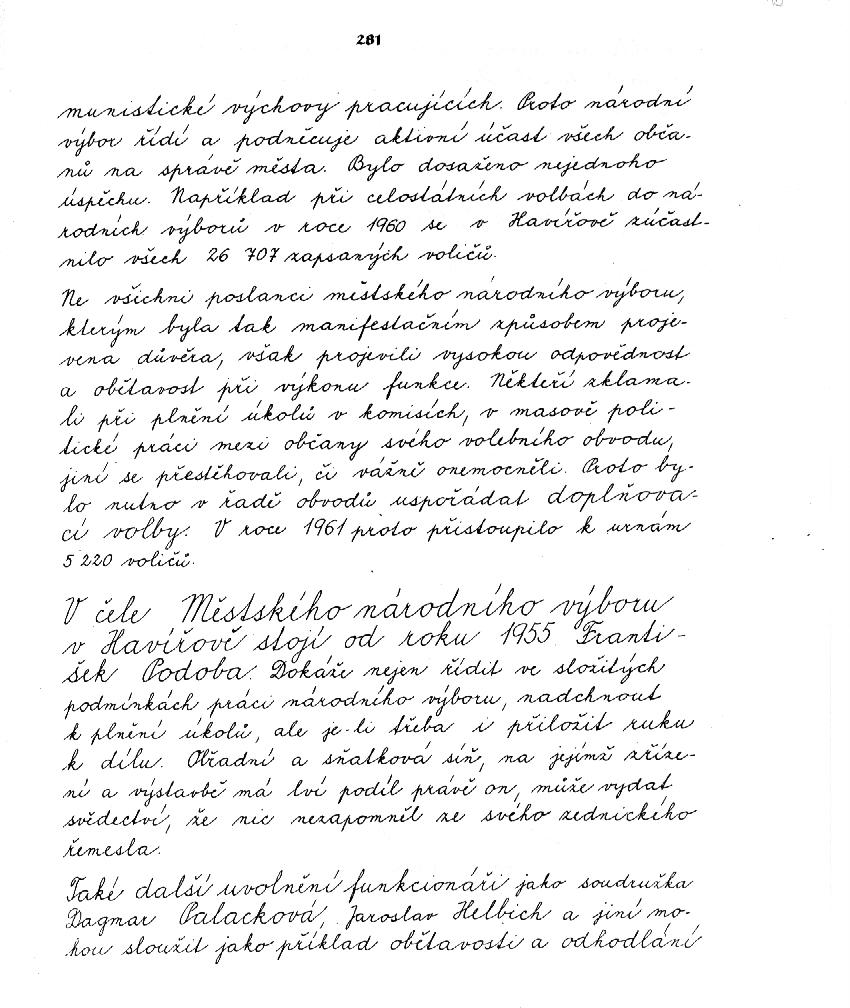 281
munistické výchovy pracujících. Proto národní
výbor řídí a podněcuje aktivní účast všech obča-
nů na správě města. Bylo dosaženo nejednoho
úspěchu. Například při celostátních volbách do ná-
rodních výborů v roce 1960 se v Havířově zúčast-
nilo všech 26 707 zapsaných voličů.
Ne všichni poslanci městského národního výboru,
kterým byla tak manifestačním způsobem proje-
vena důvěra, však projevili vysokou odpovědnost
a obětavost při výkonu funkce. Někteří zklama-
li při plnění úkolů v komisích, v masově poli-
tické práci mezi občany svého volebního obvodu,
jiní se přestěhovali, či vážně onemocněli. Proto by-
lo nutno v řadě obvodů uspořádat doplňova-
cí volby. V roce 1961 proto přistoupilo k urnám
5 220 voličů.
V čele Městského národního výboru
v Havířově stojí od roku 1955 Franti-
šek Podoba. Dokáže nejen řídit ve složitých
podmínkách práci národního výboru, nadchnout
k plnění úkolů, ale je-li třeba i přiložit ruku
k dílu. Obřadní a sňatková síň, na jejímž zříze-
ní a výstavbě má lví podíl právě on, může vydat
svědectví, že nic nezapomněl ze svého zednického
řemesla.
Také další uvolnění funkcionáři jako soudružka
Dagmar Palacková, Jaroslav Helbich a jiní mo-
hou sloužit jako příklad obětavosti a odhodlání